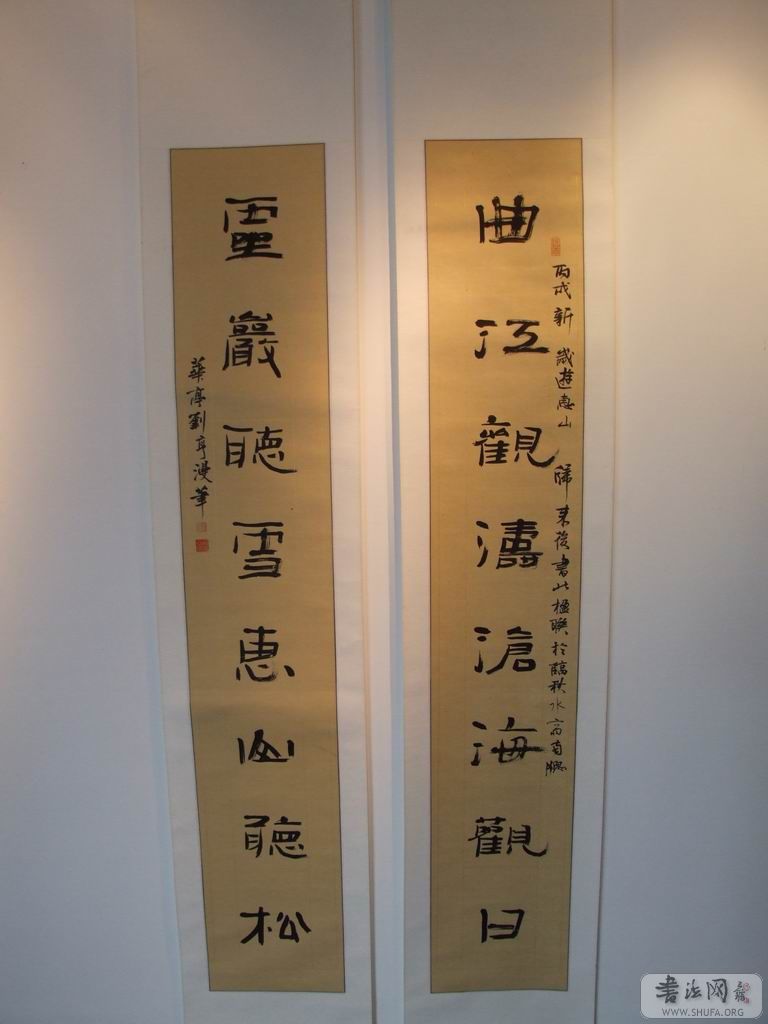 曲江觀濤滄海觀日
丙戌新歲遊惠山歸來後書此楹聯於臨秋水齋南牕
靈巖聽雪惠山聽松
華亭劉亨漫筆
书法网
WWW.SHUFA.ORG